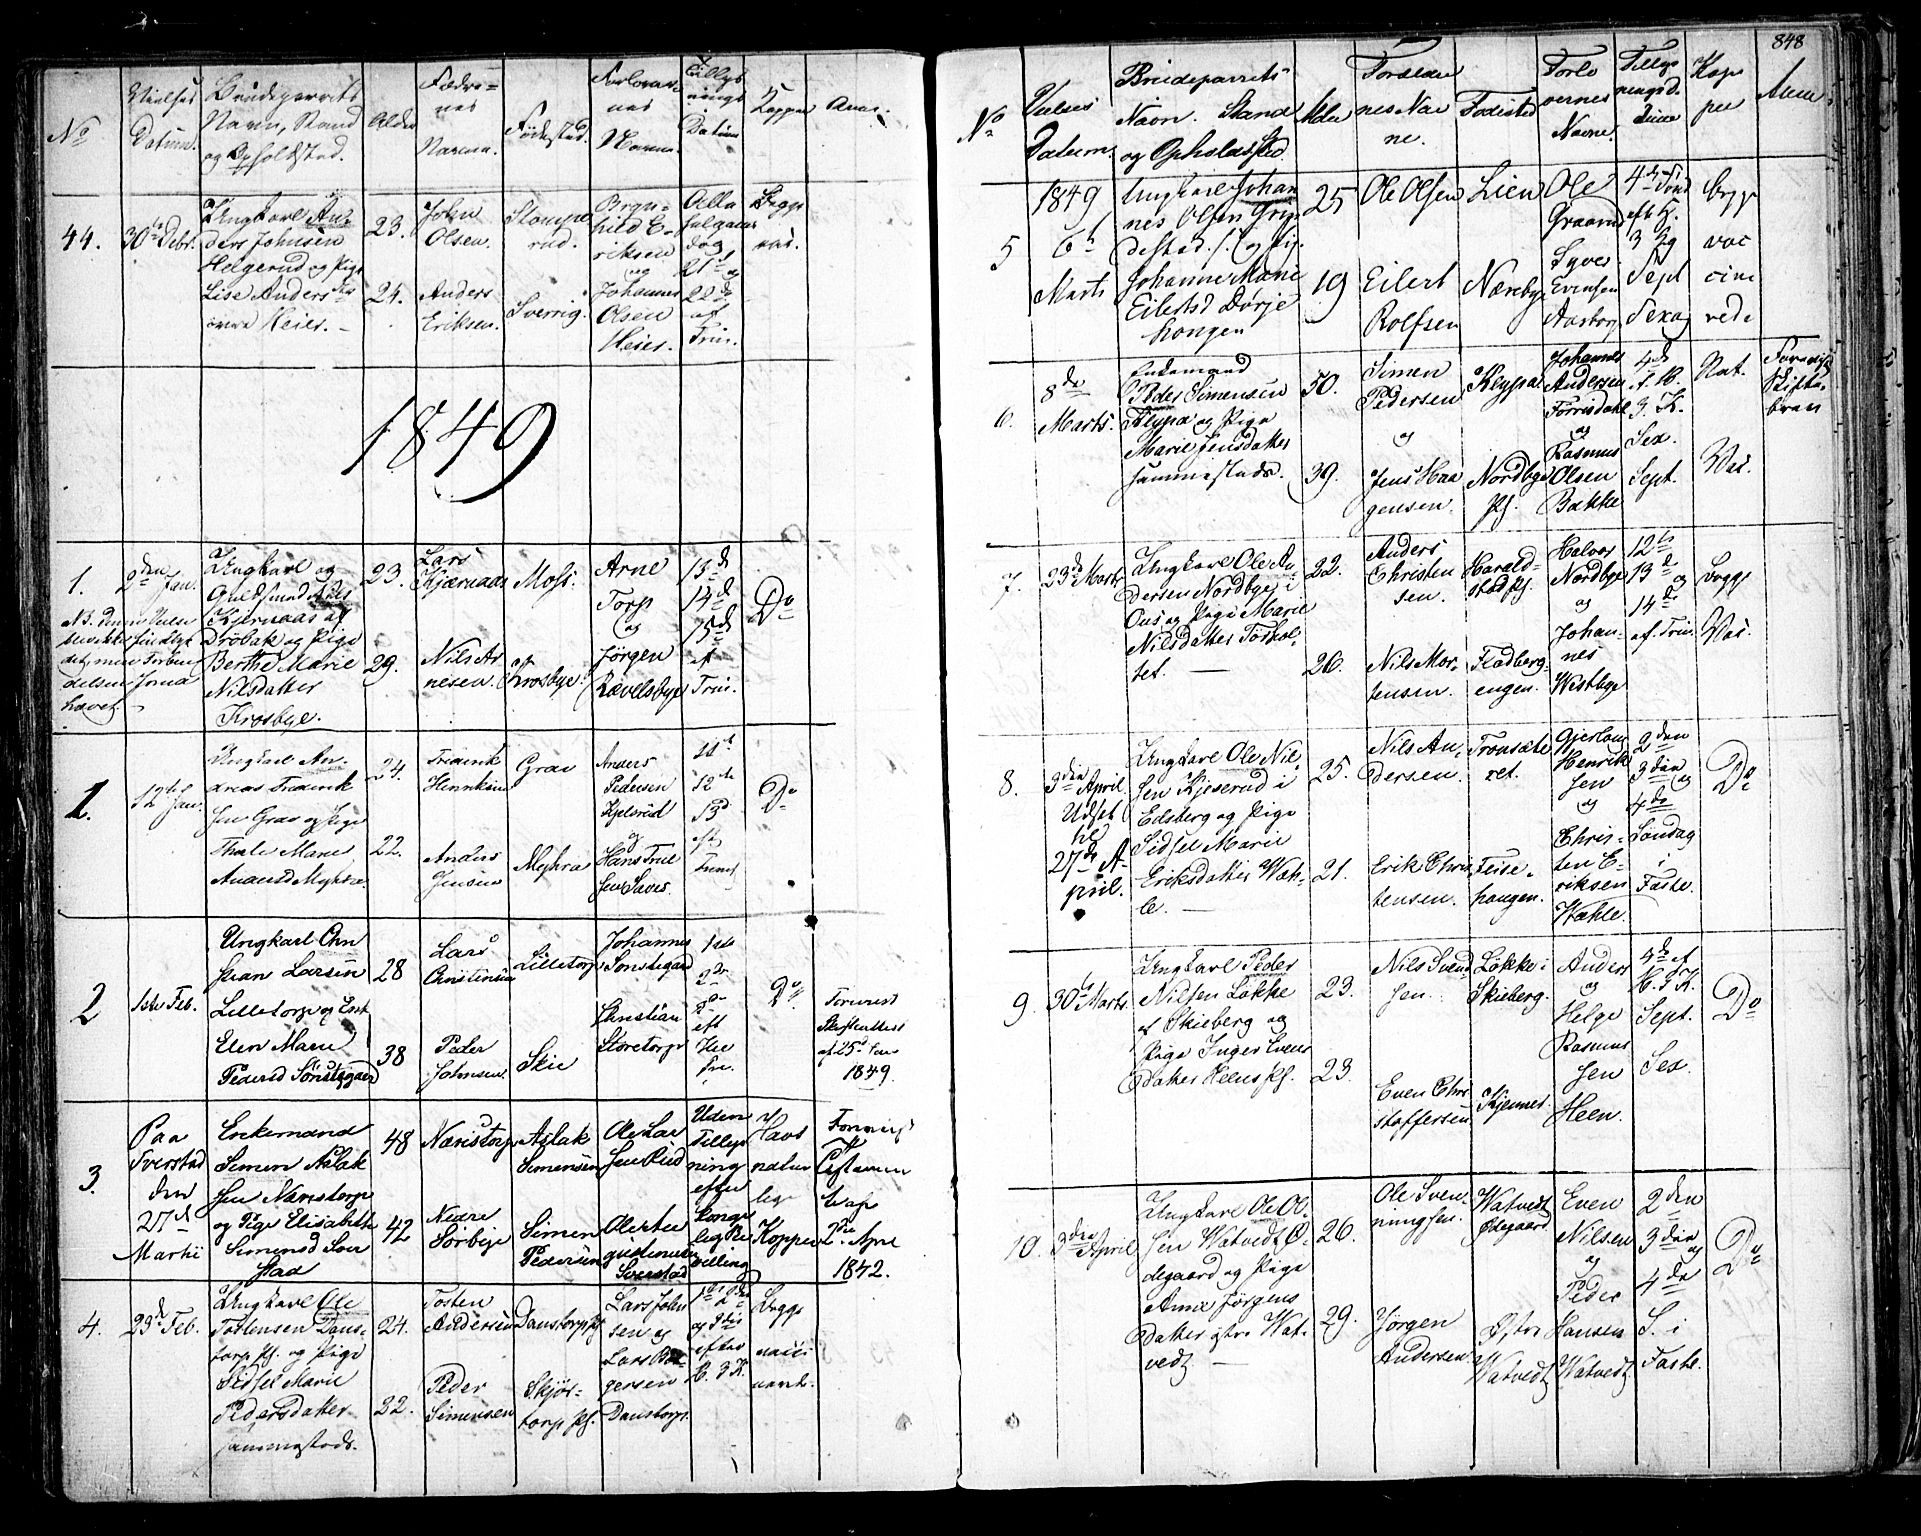 848
No
Vielses
Datum.
Brudeparrets
Navn, Stand
og Opholdsted.
Alder
Fædre=
nes
Navne.
Fødested.
Forlover=
nes
Navne.
Tillys
nings
Datum
Kopper
Anm.
44.
30te Debr.
Ungkarl An=
ders Johnsen
Helgerud og Pige
Lise Anders
Heier. –
23.
24.
John
Olsen.
Anders
Eriksen.
Sverrig.
Bryn=
hild E=
riksen
og
Johannes
Olsen
Heier.
21de og
22de
af
Trin.
1849
1.
2den Jan.
Ungkarl og
Guldsmed Nils
Kjernaas af
Drøbak og Pige
Berthe Marie
Nilsdatter
Krosbye.
23.
29.
Lars
Kjærnaas
Nils Ar
nesen.
Moss.
Krosbye.
Arne
Torp
og
Jørgen
Rævelsbye
13de
14de
15de
af
Trin.
Do
1.
12te Jan.
Ungkarl An=
dreas Frederik
sen Grav og Pige
Thale Marie
Andersd Myhra.
24.
22.
Frederik
Henriksen
Anders
Jensen
Grav
Myhra
Anders
Pedersen
og
Hans True
sen
11te
12te
13de
eft
Do
2
1ste Feb.
Ungkarl Chri
stian Larsen
Lilletorp og Enk
Elen Marie
Pedersd Sönstegaard
28
38
Lars
Christensen
Peder
Johnsen.
Lilletorp
Skie
Johannes
Sonstegaard
Christian
Storetorp
1ste
2de
3de
eft
Do
Forevist
Skifteattest
af 25de Jan
1849.
3.
Paa
Sverstad
den
27de
Martii
Enkemand
Simen Aslak
sen Næristorp
og Pige Elisabeth
Simensd Sver
stad
48
42
Næristorp
Nedre
Sörbye
Aslak
Simensen
Simen
Pedersen
Ole Lar
sen Rud
Ole
Sverstad
Uden
Tillys
ning
efter
Konge
lig Be
villing
Havt
natur
lige
Kopper
1842.
4.
23de Feb.
Ungkarl Ole
Tostensen Dans=
torp Pl. og Pige
Sidsel Marie
Pedersdatter
sammestads.
24.
22.
Tosten
Andersen
Peder
Simensen
Danstorp Pl
Skjør=
torp Pl.
Lars John
sen og
Lars Bør
gersen
Danstorp.
og 3die
efter
H. 3 K.
No
Vielses
Datum.
Brudeparrets
Navn. Stand
og Opholdssted
Alder
Forældre
nes Nav
ne.
Fødested
Forlo
vernes
Navne.
Tillys
ningsd.
Kop
per
Anm.
5
1849
6te
Marts
Ungkarl Johan
nes Olsen Grin
destad. og Pig.
Johanne Marie
Eilertsd Dørje
hougen
25
19
Ole Olsen
Eilert
Rolfsen
Lien
Nærebye
Ole
Graarud
Syver
Evensen
Aasborg
4de Sönd
eft H.
3 Kg
Sept
Sexag
Vac
cine
rede
6.
8de
Marts.
Enkemand
Peder Simensen
Kleypa og Pige
Marie Jensdatter
sammestads.
50.
39.
Simen
Pedersen
og
Jens Haa
gensen.
Kleypa
Nordbye
Pl.
Johannes
Andersen
Torrisdahl
og
Rasmus
Olsen
Bakke
4de
f. H.
3. K.
Sex.
Sept.
Nat.
Vac.
Forevist
Skifte=
brev
7.
23de Marts
Ungkarl Ole An=
dersen Nordbye i
Ous og Pige Marie
Nilsdatter Torkol=
tet. –
22.
26.
Anders
Christen
sen.
Nils Mor=
tensen.
Harald=
stad Pl.
Fladberg
engen.
Halvor
Nordbye
og
Johan=
nes
Westbye
12te
13de
og
14de
af Trin.
Vac.
8.
3die April
Udsat
til
27de A=
pril.
Ungkarl Ole Nil=
sen Kjeserud i
Edsberg og Pige
Sidsel Marie
Eriksdatter Wæh=
le. –
25.
21.
Nils An=
dersen.
Erik Chris
tensen.
Teise=
haugen.
Gjerløug
Henrik
sen
og
Chris=
ten E=
riksen
Wæhle.
2den
3die og
4de
Söndag
i
Faste.
Do
9.
30te Marts.
Ungkarl Peder
Nilsen Løkke
af Skieberg og
Pige Inger Evens
datter Heens Pl.
23.
23.
Nils Svend
sen.
Even Chri
stoffersen
Løkke i
Skieberg.
Kjennes.
Anders
og
Helge
Rasmus
sen
Heen.
4de ef
H. 3 K.
Sept.
Sex.
Do
10.
3die April
Ungkarl Ole Ol=
sen Watvedt Ø=
degaard og Pige
Anne Jørgens
datter østre Wat=
vedt –
26.
29.
Ole Sven=
ningsen.
Jörgen
Andersen.
Watvedt
Ødegaard
Østre
Watvedt
Even
Nilsen
og
Peder
Hansen
Watvedt
2den
3die og
4de
S. i
Faste.
Do